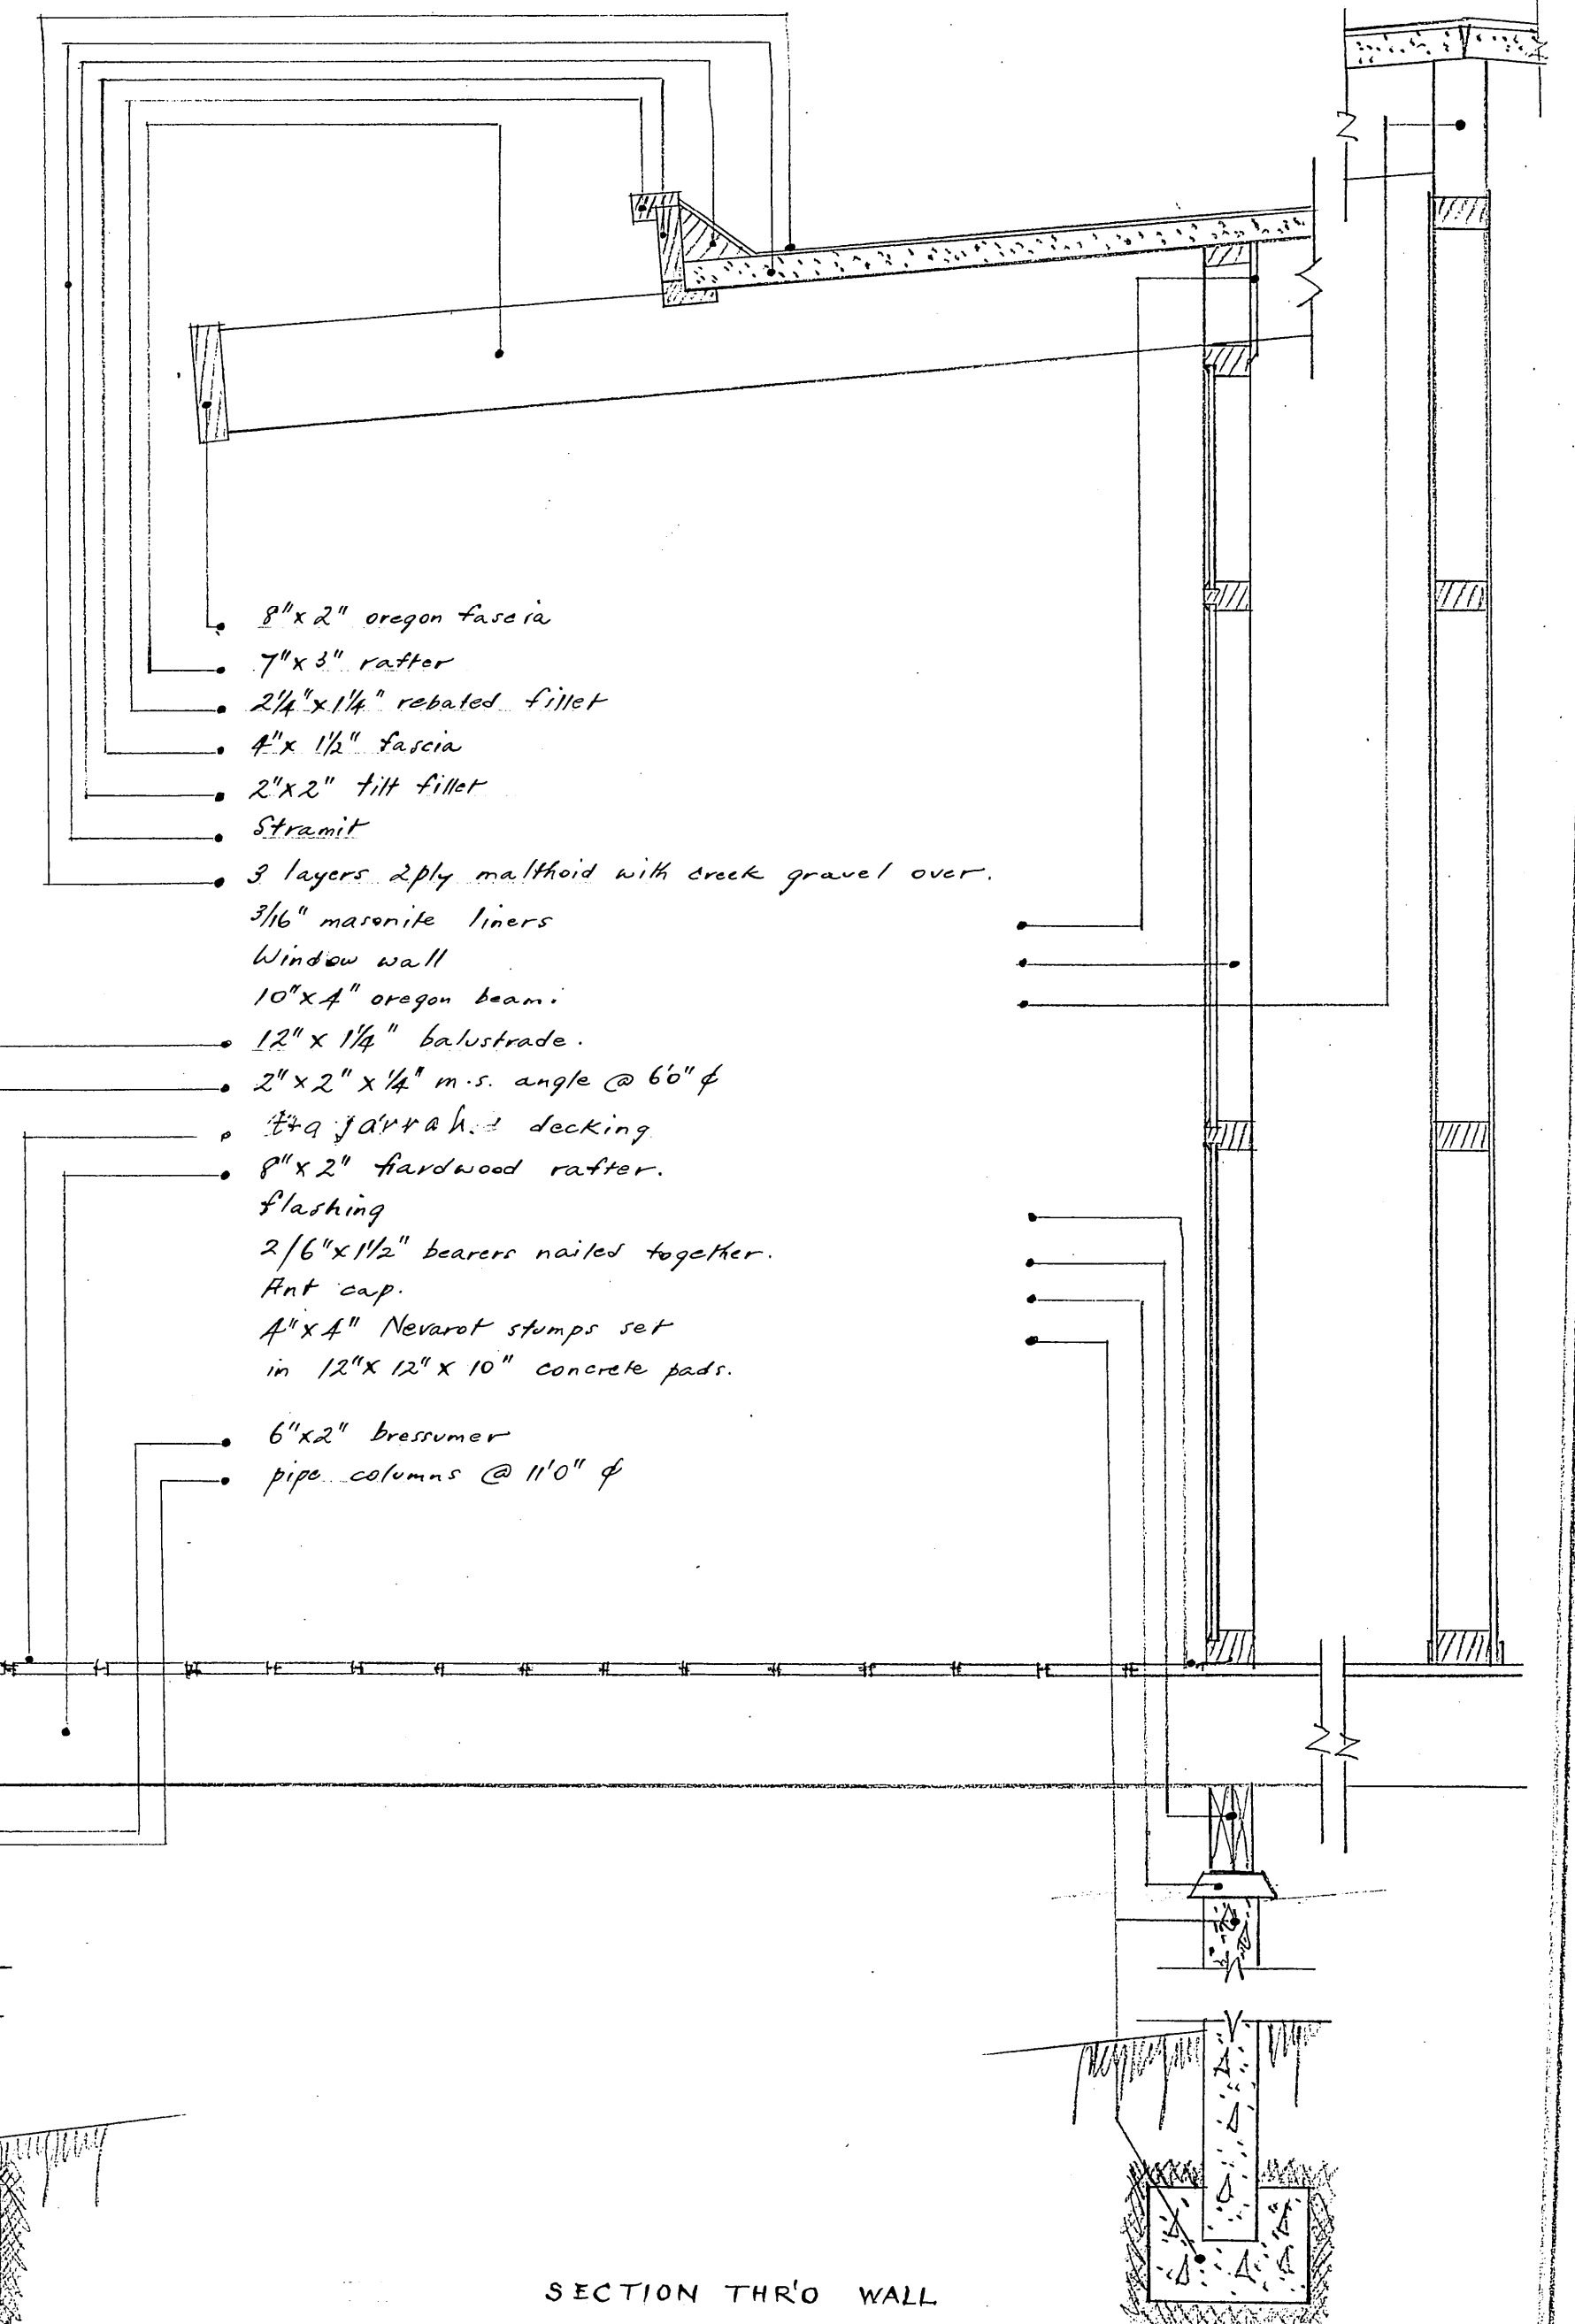 8"x 2" oregon fascia
7"x 3" rafter
2¼"x 1¼" rebated fillet
4"x 1½" fascia
2"x2" tilt fillet
Stramit
3 layers 2ply malthoid with creek gravel over.
3/16" masonite liners
Window wall
10"x 4" oregon beam.
12" x 1¼" balustrade.
2"x 2" x ¼" m.s. angle @ 6'0" ȼ
jarrah decking
8"x 2" hardwood rafter.
flashing
2/6"x1½" bearers nailed together.
Ant cap.
4"x 4" Nevarot stumps set
in 12"x 12" x 10" concrete pads.
6"x2" bressumer
pipe columns @ 11'0" ȼ
SECTION THR'O WALL